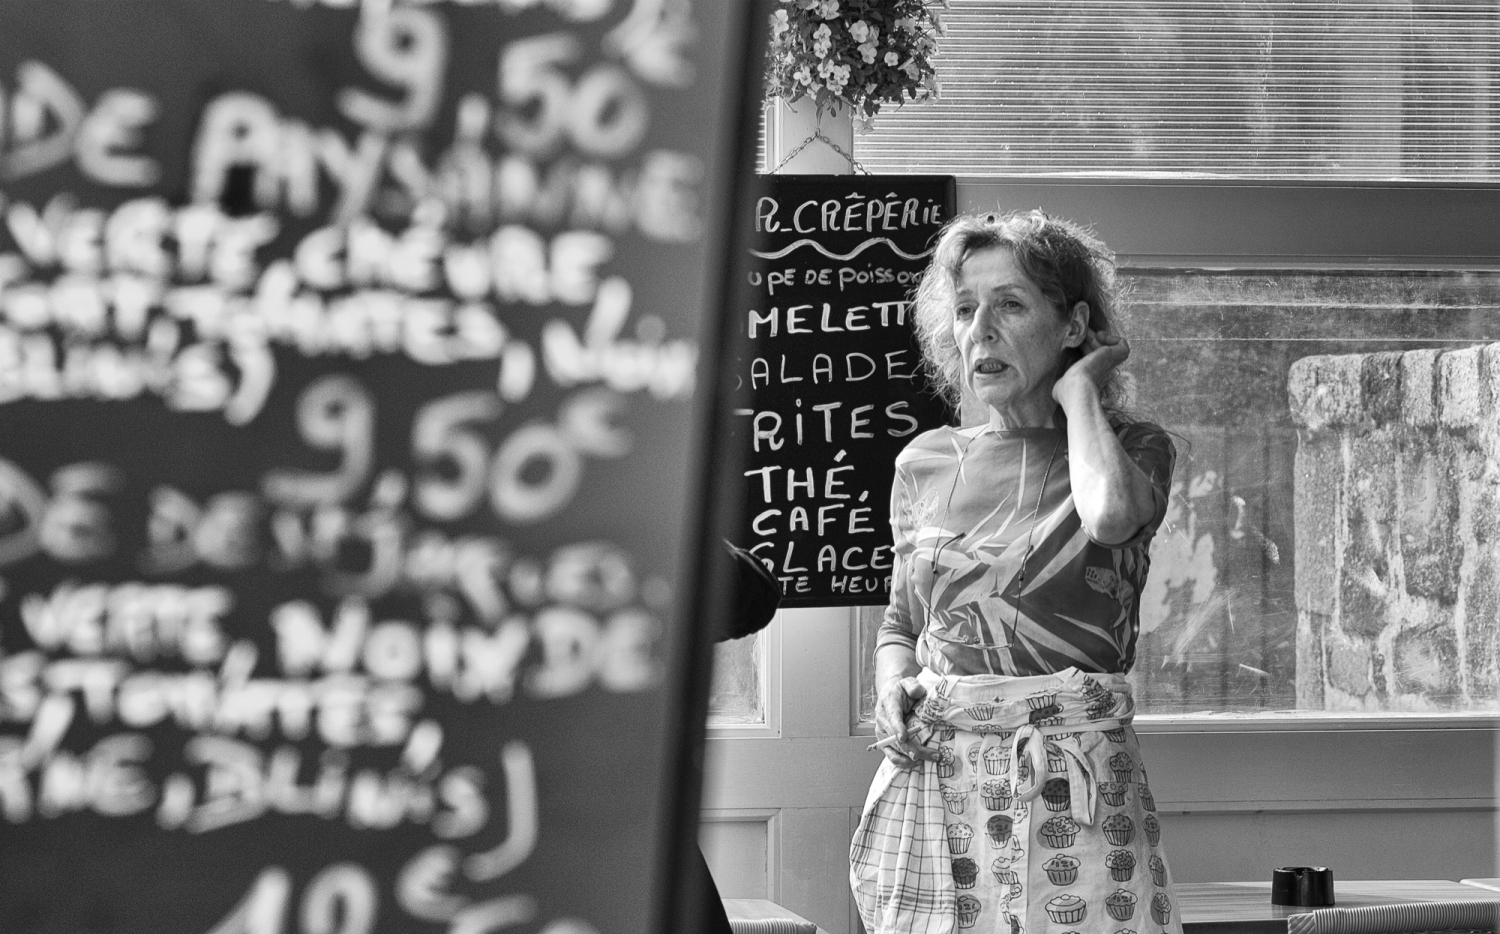 9,50€
DE PAYSANNE
VERTE, CHÈVRE,
TOMATES,
9,50€
DE DE
VERTE, NOIX DE
TOMATES,
BLINIS)
10€
R_CRÊPÊRiE
UPE DE POiSSON
MELETT
ALADE
RiTES
THÉ,
CAFÉ
GLACE
TE HEUR